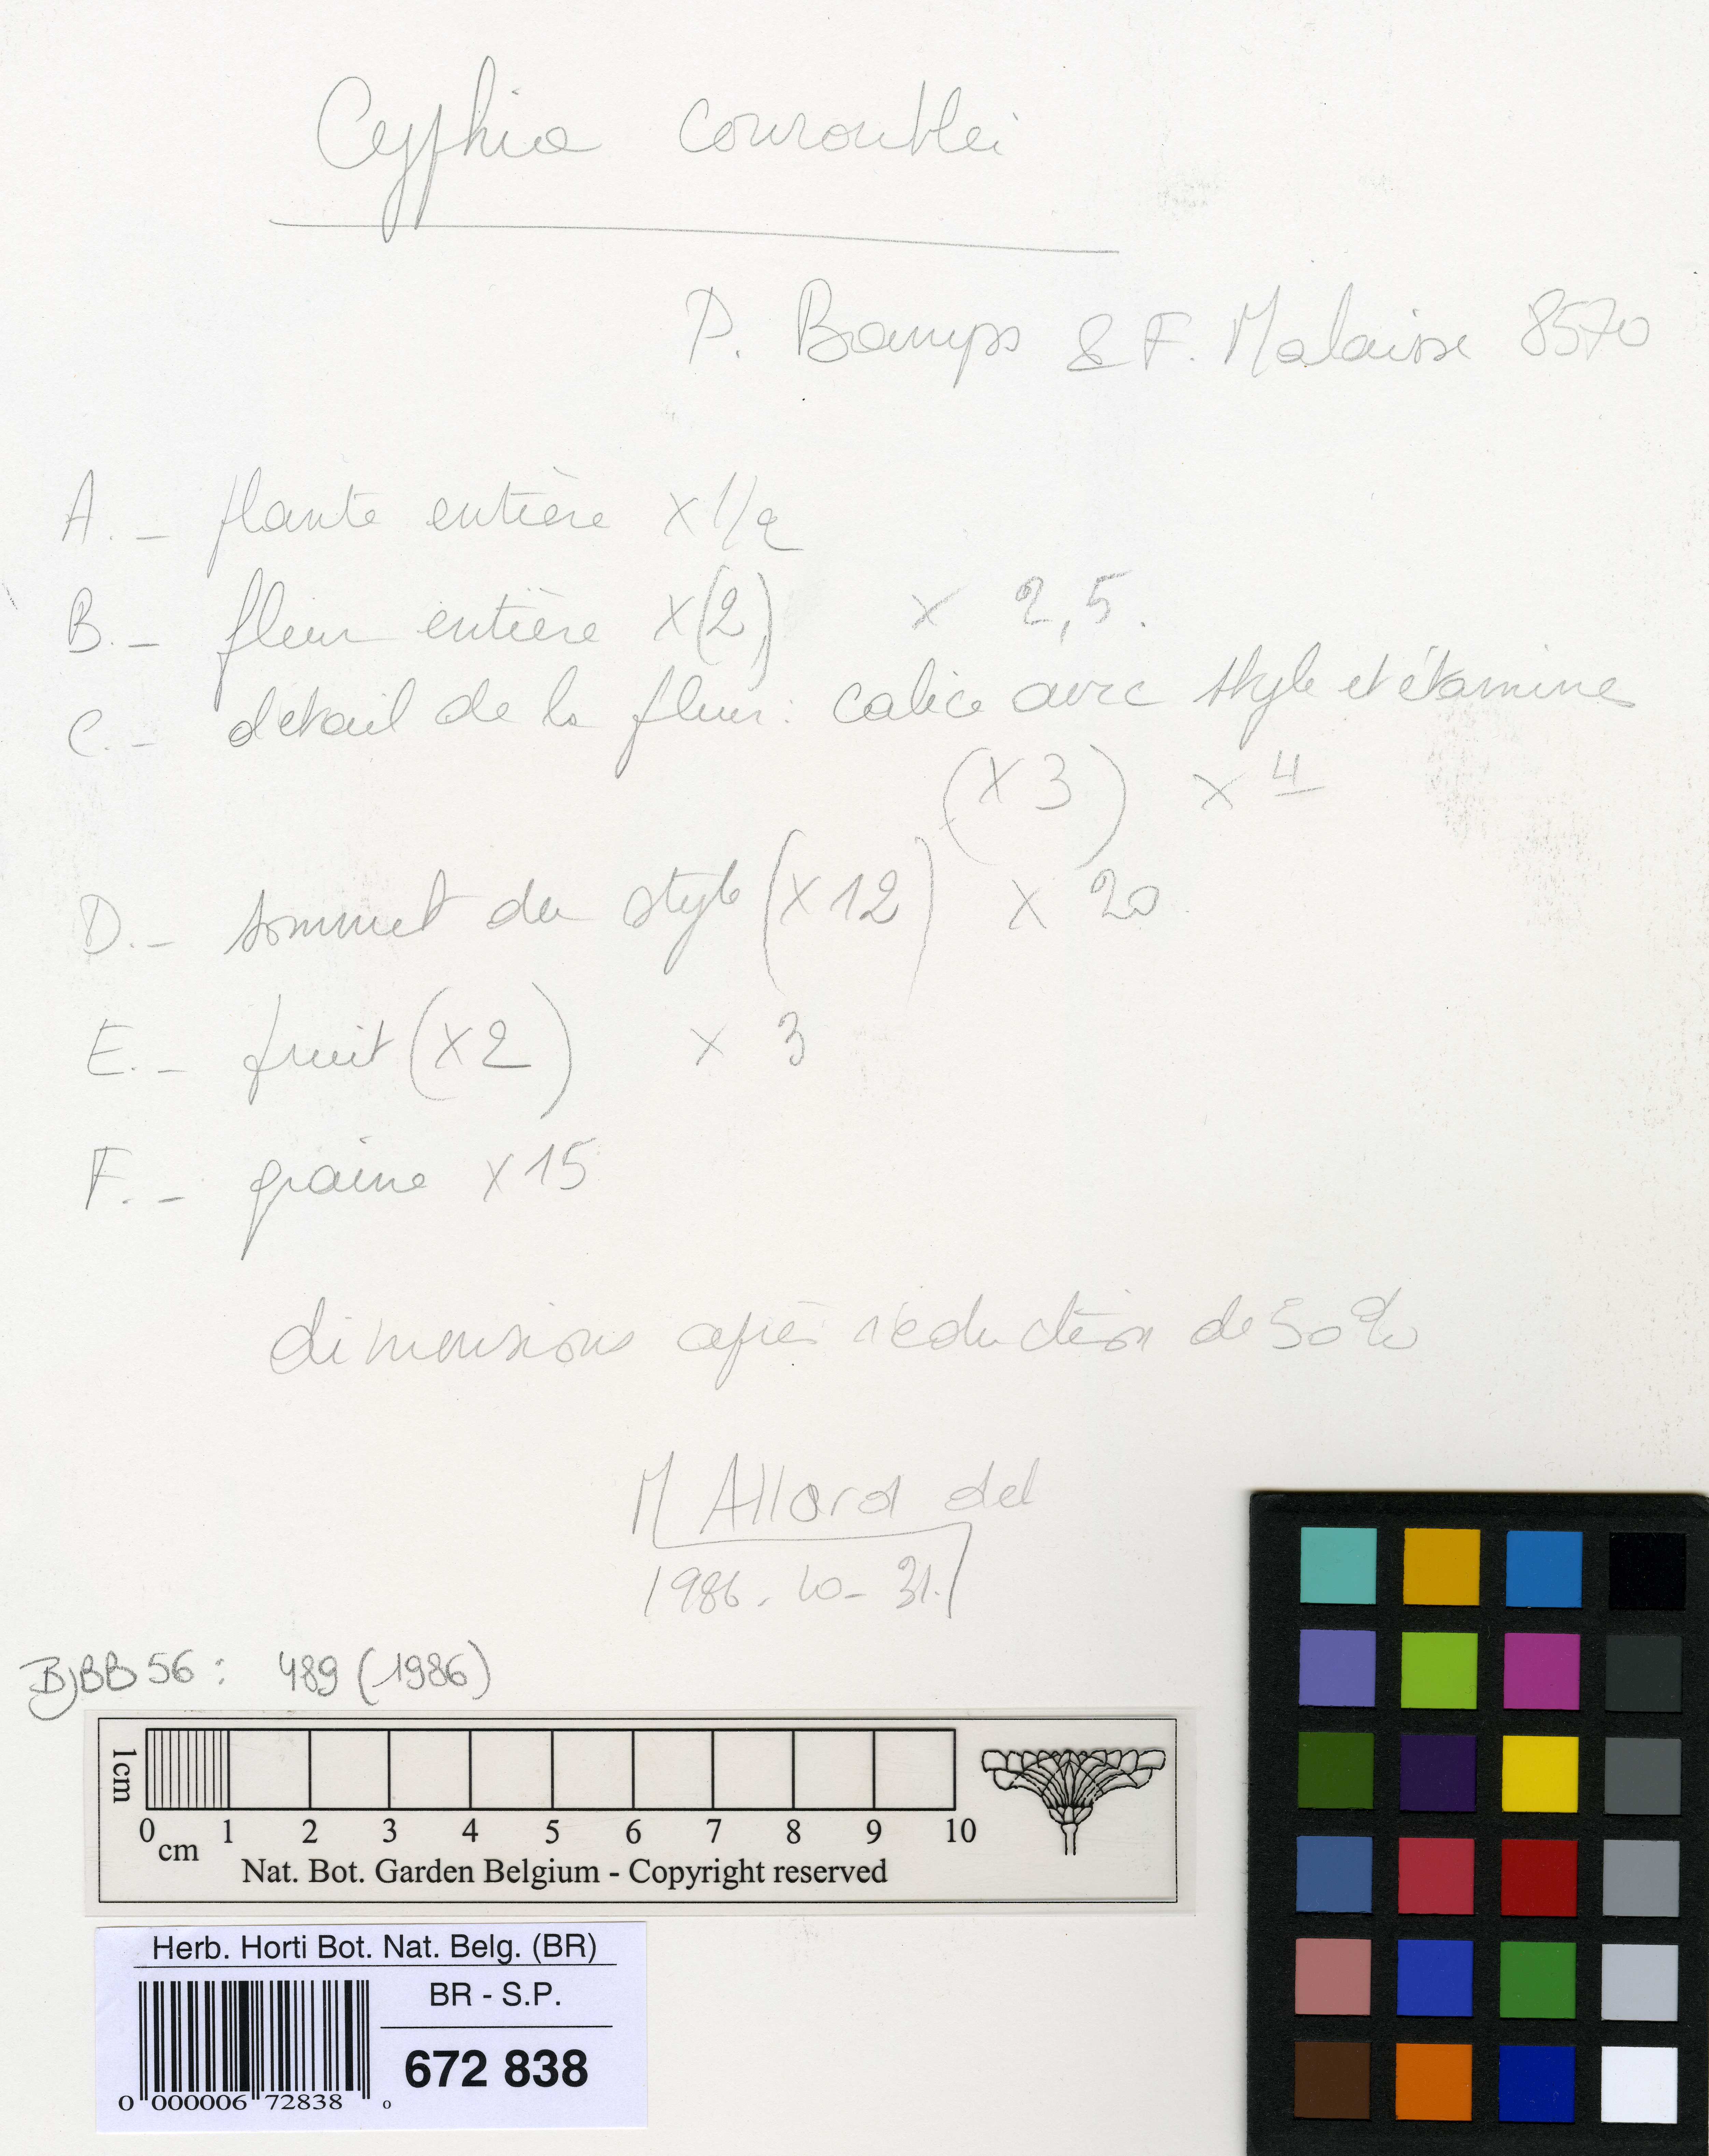 Cyphia couroublei
P. Bamps & F. Malaisse 8570
A. - plante entière x 1/2
B. - fleur entière x (2) x 2,5.
C. - detail de la fleur: calice avec style et étamines
(x 3) x 4
D. - sommet du style (x 12) x 20
E. - fruit (x 2) x 3
F. - graine x 15
dimensions après réduction de 50%
M Allard del
1986. 10 - 31.
BJBB 56 : 489 (1986)
1cm
0 1 2 3 4 5 6 7 8 9 10
cm
Nat. Bot. Garden Belgium - Copyright reserved
Herb. Horti Bot. Nat. Belg. (BR)
BR - S.P.
672 838
0 000006 72838 0